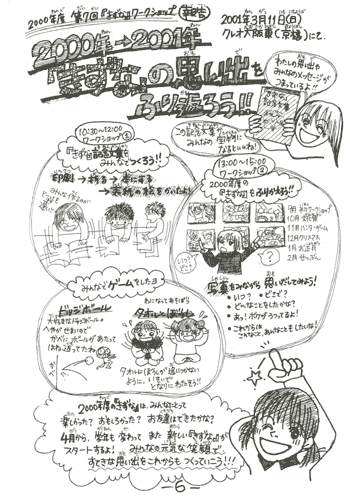 2000年度 第7回『きずな』ワークショップ 報告
2001年3月11日(日)
クレオ大阪東(京橋)にて.
2000年→2001年
『きずな』の思い出を
ふり返ろう!!
わたしの思い出や
みんなのメッセージが
つまっているよ!!
この記念文集が
みんなの
宝物に
なるといいね!
10:30~12:00
ワークショップ①
『きずな記念文集を
みんなでつくろう!!
印刷→折る→本にする
→表紙の絵をかいたよ!
13:00~15:00
ワークショップ②
2000年度の
『きずな』をふりかえろう!!
10月 大阪城
11月 ハンターゲーム
12月 クリスマス
1月 お正月
2月 せつぶん
写真をみながら 思いだしてみよう!
・いつ? ・どこで?
・どんなことをしたかな?
・あっ! ボクがうつってるよ!
・これからは
こんなこと、あんなこともしたいな!
みんなでゲームをしたヨ
ドッジボール
大好きなドッジボール。
へやがせまいので
かべに ボールがあたって
はね返ってたわ
タオルとばし
わになってあそぼう
タオルにぼうしが追いつかない
ように、いそいで
となりにわたそう!!
2000年度の『きずな』は、みんなにとって
楽しかった? おもしろかった? お友達はできたかな?
4月から、学年も変わって また 新しい『きずな』が
スタートするよ! みんなの元気な笑顔で
すてきな思い出をこれからも つくっていこう!!!
-6-